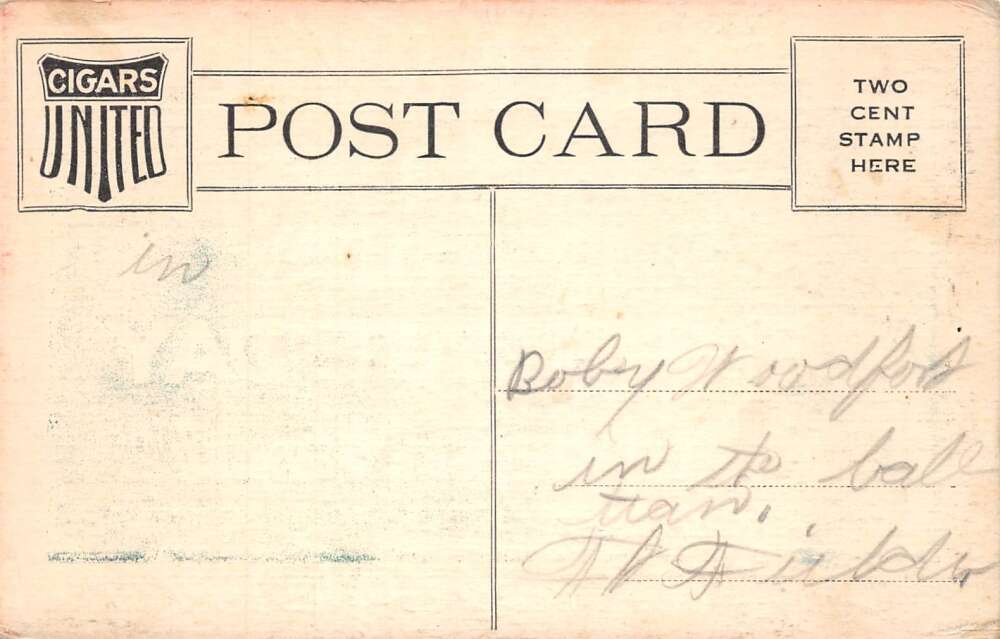 CIGARS
UNITED
POST CARD
TWO
CENT
STAMP
HERE
in
Boby Woodford
in the ball